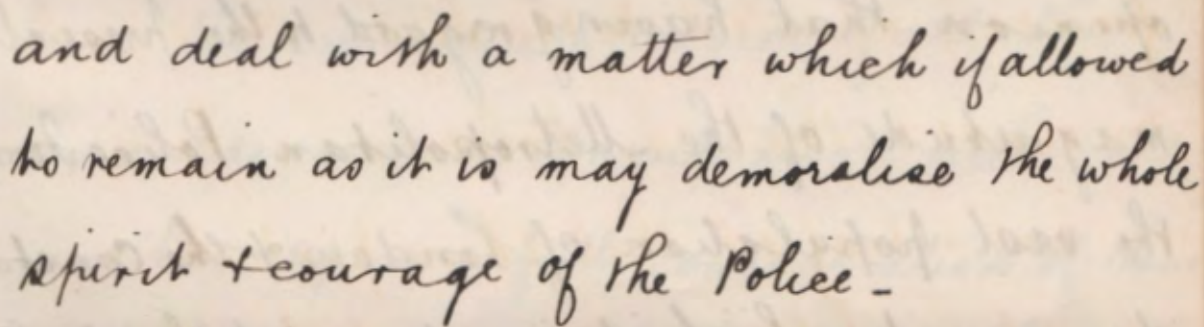 and deal with a matter which if allowed
to remain as it is may demoralise the whole
spirit + courage of the Police -